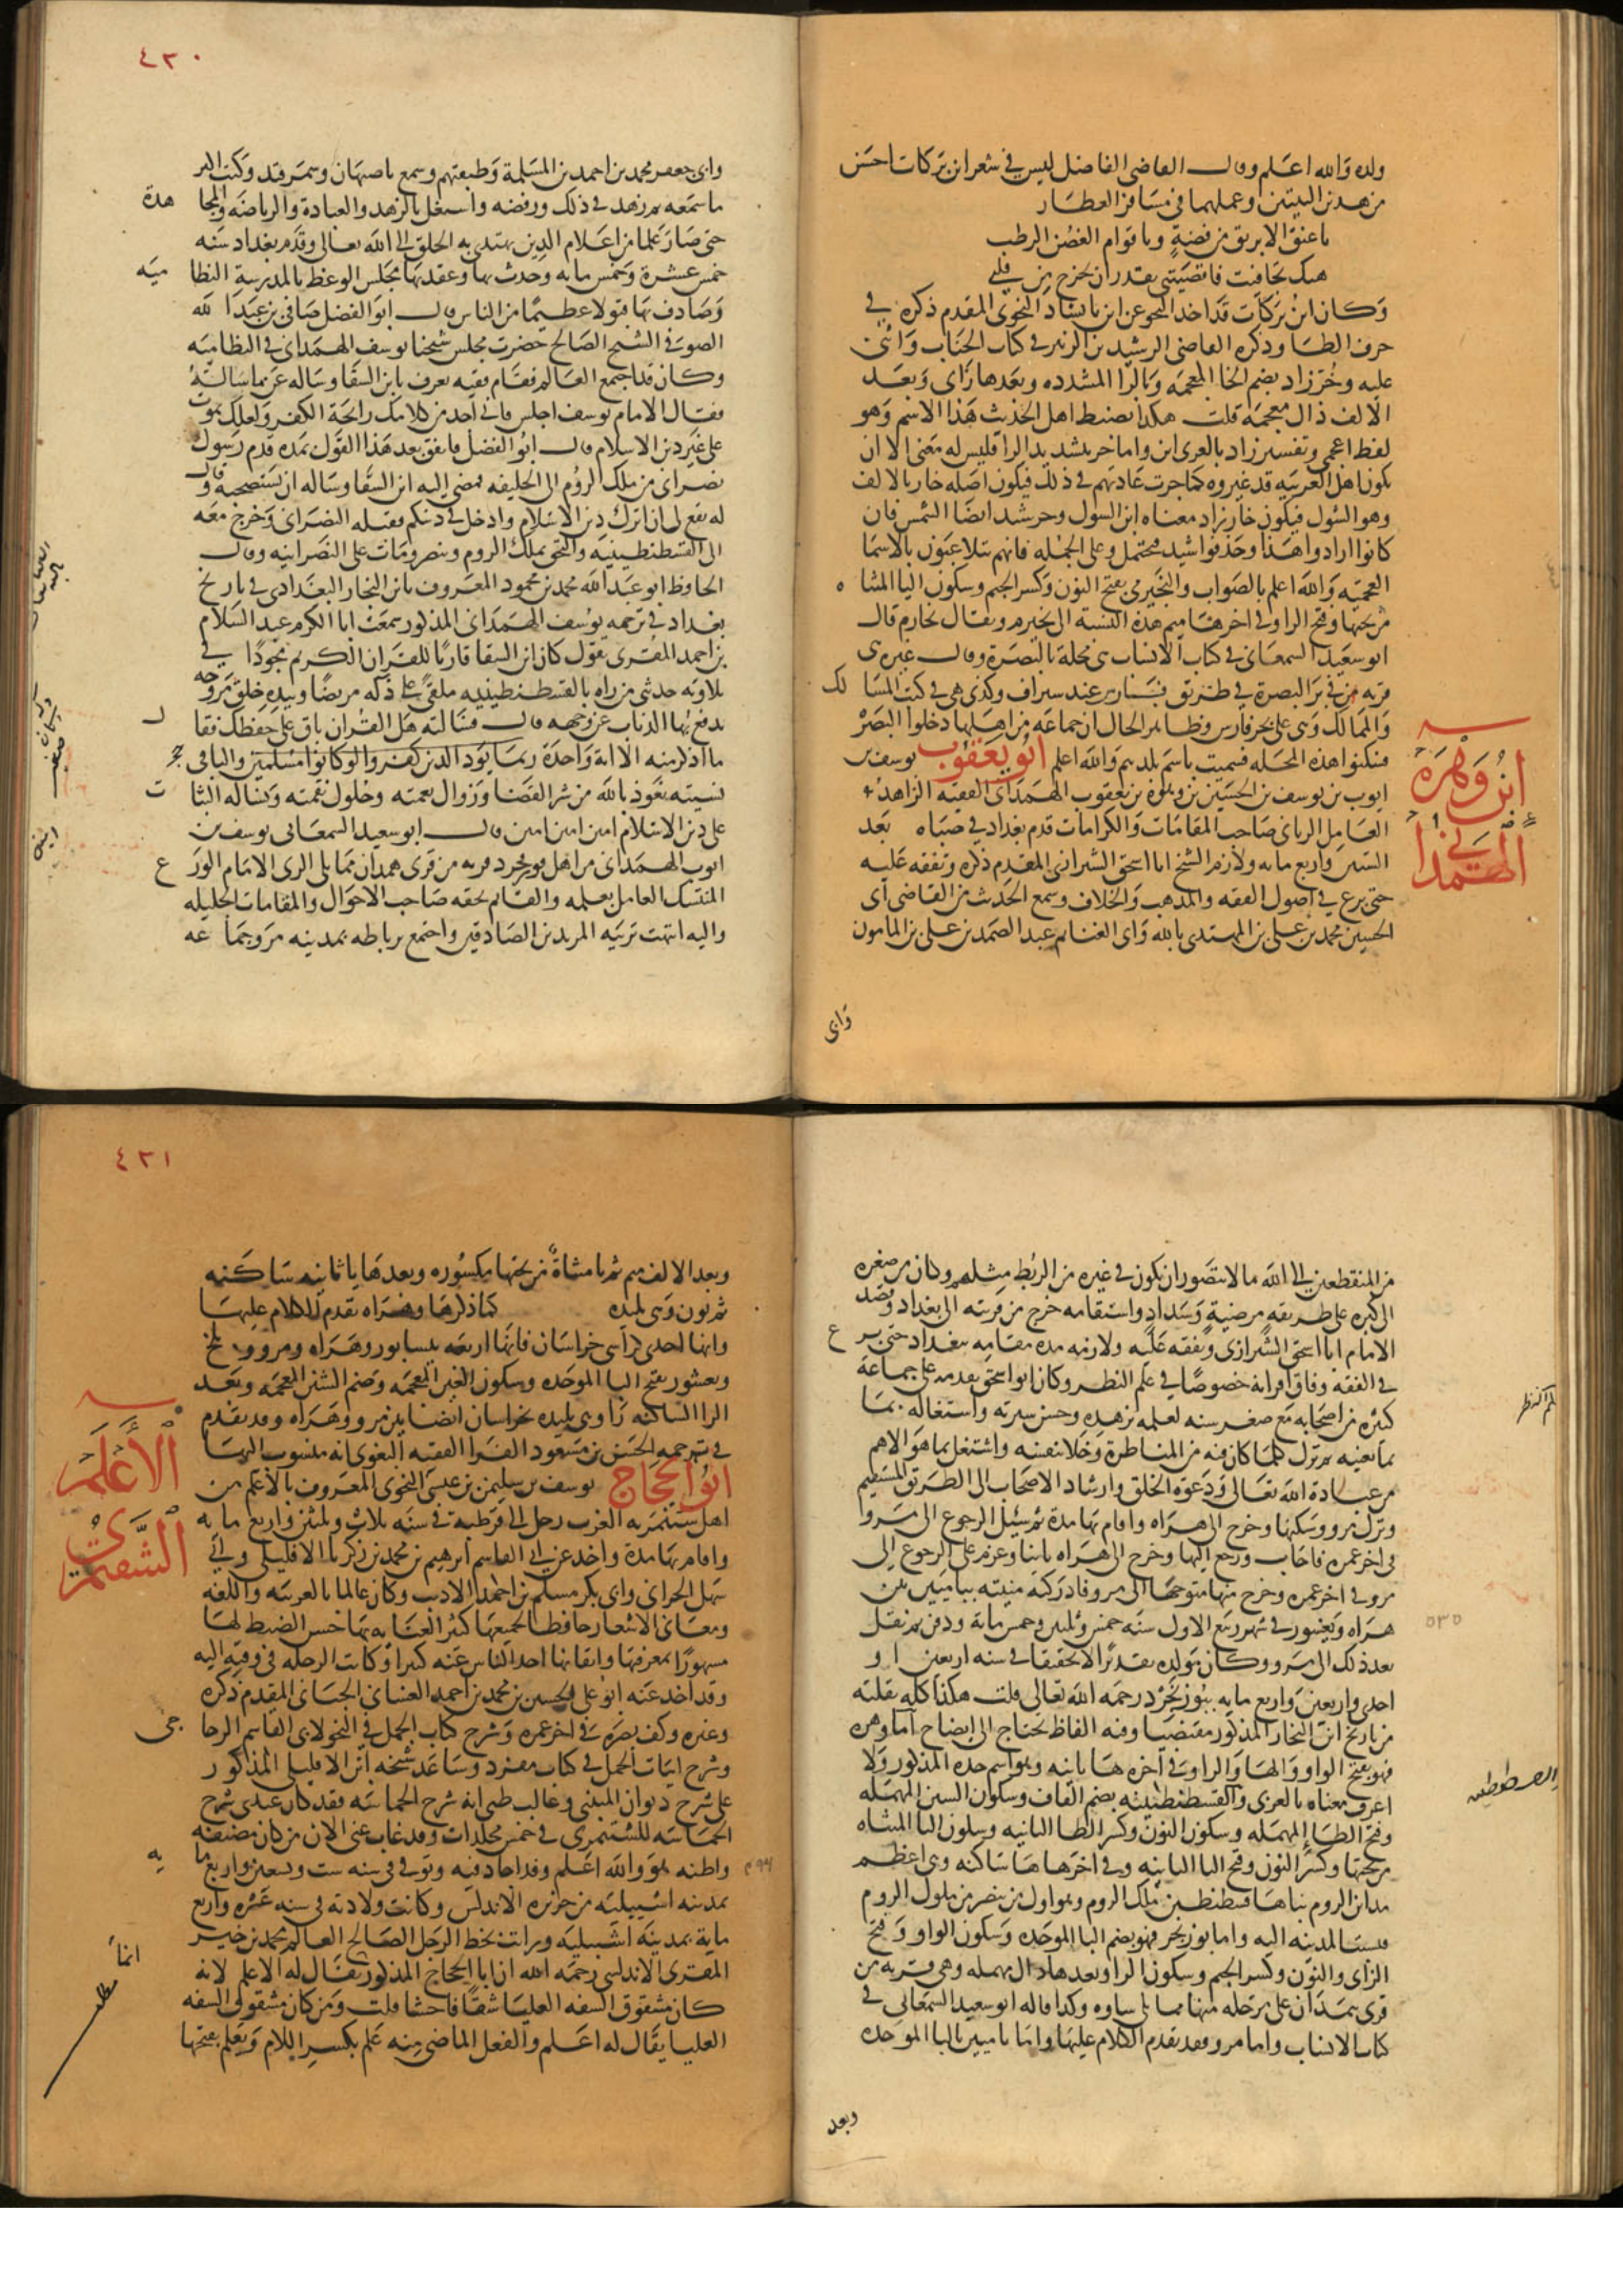 ولده والله اعلم وقال القاضى الفاضل ليس فى شعر ابن بركات احسن
من هذين البيتين وعملهما فى مسافر العطار
يا عنق الابريق من فضة ويا قوام الغصن الرطب
هبك تجافيت فاقصيتنى تقدر ان تخرج من قلبى
وكان ابن بركات قد اخذ النحو عن ابن بابشاذ النحوى المقدم ذكره فى
حرف الطا وذكره القاضى الرشيد بن الزبير فى كتاب الجنان واثنى
عليه وخرزاذ بضم الخا المعجمه وبالرا المشدده وبعدها زاى وبعد
الالف ذال معجمة قلت هكذا يضبط اهل الحديث هذا الاسم وهو
لفظ اعجمى وتفسير زاد بالعربى ابن واما خر بتشديد الرا فليس له معنى الا ان
يكون اهل العربيه قد غيروه كما جرت عادتهم فى ذلك فيكون اصله خار بالالف
وهو الشوك فيكون خارزاد معناه ابن الشوك وخرشيد ايضا الشمس فان
كانوا ارادوا هذا وحذفوا شيد فمحتمل وعلى الجمله فانهم يتلاعبون بالاسما
العجميه والله اعلم بالصواب والنجيرمى بفتح النون وكسر الجيم وسكون اليا المثناه
من تحتها وفتح الرا وفى اخرها ميم هذه النسبة الى نجيرم ويقال نجارم قال
ابو سعيد السمعانى فى كتاب الانساب هى محلة بالبصرة وقال غيره هى
قريه من فى بر البصرة فى طريق فارس عند سيراف وكذى هى فى كتب المسالك
والممالك وهى على بحر فارس وظاهر الحال ان جماعه من اهلها دخلوا البصره
فسكنوا هذه المحله فسميت باسم بلدهم والله اعلم ابو يعقوب يوسف بن
ابن وهره الهمدانى
ايوب بن يوسف بن الحسين بن وهره بن يعقوب الهمدانى الفقيه الزاهد
العامل الربانى صاحب المقامات والكرامات قدم بغداد فى صباه بعد
الستين واربع مايه ولازم الشيخ ابا اسحق الشيرازى المقدم ذكره وتفقه عليه
حتى برع فى اصول الفقه والمذهب والخلاف وسمع الحديث من القاضى ابى
الحسين محمد بن على بن المهتدى بالله وابى الغنايم عبد الصمد بن على بن المامون
وابى
٤٣٠
وابى جعفر محمد بن احمد بن المسلمة وطبقتهم وسمع باصبهان وسمرقند وكتب اكثر
ما سمعه ثم زهد فى ذلك ورفضه واشتغل بالزهد والعبادة والرياضه والمجاهدة
حتى صار علما من اعلام الدين يهتدى به الخلق الى الله تعالى وقدم بغداد سنه
خمس عشرة وخمس مايه وحدث بها وعقد بها مجلس الوعظ بالمدرسة النظاميه
وصادف بها قبولا عظيما من الناس قال ابو الفضل صافى بن عبد الله
الصوفى الشيخ الصالح حضرت مجلس شيخنا يوسف الهمدانى فى النظاميه
وكان قد اجتمع العالم فقام فقيه يعرف بابن السقا وساله عن مسالة
فقال الامام يوسف اجلس فانى اجد من كلامك رايحة الكفر ولعلك تموت
على غير دين الاسلام قال ابو الفضل فاتفق بعد هذا القول بمدة قدم رسول
نصرانى من ملك الروم الى الخليفه فمضى اليه ابن السقا وساله ان يستصحبه وقال
له يقع لى ان اترك دين الاسلام وادخل فى دينكم فقبله النصرانى وخرج معه
الى القسطنطينيه والتحق بملك الروم وتنصر ومات على النصرانيه وقال
الحافظ ابو عبد الله محمد بن محمود المعروف بابن النجار البغدادى فى تاريخ
بغداد فى ترجمه يوسف الهمدانى المذكور سمعت ابا الكرم عبد السلام
بن احمد المقرى يقول كان ابن السقا قاريا للقران الكريم مجودا فى
تلاوته حدثنى من راه بالقسطنطينيه ملقى على دكه مريضا وبيده خلق مروحه
يدفع بها الذباب عن وجهه قال فسالته هل القران باق على حفظك فقال
ما اذكر منه الا اية واحدة ربما يود الذين كفروا لو كانوا مسلمين والباقى
نسيته نعوذ بالله من شر القضا وزوال نعمته وحلول نقمته ونساله الثبات
على دين الاسلام امين امين امين قال ابو سعيد السمعانى يوسف بن
ايوب الهمدانى من اهل بوزنجرد قريه من قرى همدان مما يلى الرى الامام الورع
المتنسك العامل بعلمه والقايم بحقه صاحب الاحوال والمقامات الجليله
واليه انتهت تربيه المريدين الصادقين واجتمع برباطه بمدينه مرو جماعه
من المنقطعين الى الله ما لا يتصور ان يكون فى غيره من الربط مثلهم وكان من صغره
الى كبره على طريقه مرضية وسداد واستقامه خرج من قريته الى بغداد وقصد
الامام ابا اسحق الشيرازى وتفقه عليه ولازمه مده مقامه ببغداد حتى برع
فى الفقه وفاق اقرانه خصوصا فى علم النظر وكان ابو اسحق يقدمه على جماعة
كثيره من اصحابه مع صغر سنه لعلمه بزهده وحسن سيرته واشتغاله بما
يعنيه ثم ترك كلما كان فيه من المناظرة وخلا بنفسه واشتغل بما هو الاهم
من عبادة الله تعالى ودعوة الخلق وارشاد الاصحاب الى الطريق المستقيم
ونزل مرو وسكنها وخرج الى هراه واقام بها مدة ثم سئل الرجوع الى مرو
فى اخر عمره فاجاب ورجع اليها وخرج الى هراه ثانيا وعزم على الرجوع الى
مرو فى اخر عمره وخرج منها متوجها الى مرو فادركته منيته بباميين بين
هراه وبغشور فى شهر ربيع الاول سنه خمس وثلثين وخمس ماية ودفن ثم نقل
٥٣٥
بعد ذلك الى مرو وكان مولده تقديرا لا تحقيقا فى سنه اربعين او
احدى واربعين واربع مايه ببوزنجرد رحمه الله تعالى قلت هكذا كله نقلته
من تاريخ ابن النجار المذكور مقتضبا وفيه الفاظ تحتاج الى ايضاح اما وهره
فهو بفتح الواو والها والرا وفى اخره ها ثانيه وهو اسم جده المذكور ولا
اعرف معناه بالعربى والقسطنطينيه بضم القاف وسكون السين المهمله
وفتح الطا المهمله وسكون النون وكسر الطا الثانيه وسكون اليا المثناه
من تحتها وكسر النون وفتح اليا الثانيه وفى اخرها ها ساكنه وهى اعظم
مداين الروم بناها قسطنطين ملك الروم وهو اول من تنصر من ملوك الروم
فنسبت المدينه اليه واما بوزنجرد فهو بضم البا الموحده وسكون الواو وفتح
الزاى والنون وكسر الجيم وسكون الرا وبعدها دال مهمله وهى قريه من
قرى همذان على مرحله منها مما يلى ساوه وكذا قاله ابو سعيد السمعانى فى
كتاب الانساب واما مرو فقد تقدم الكلام عليها واما باميين بالبا الموحده
وبعد
٤٣١
وبعد الالف ميم ثم يا مثناة من تحتها مكسوره وبعدها يا ثانيه ساكنه
ثم نون وهى بليده كما ذكرها وهراه تقدم الكلام عليها
وانها احدى كراسى خراسان فانها اربعه نيسابور وهراه ومرو وبلخ
وبغشور بفتح البا الموحده وسكون الغين المعجمه وضم الشين المعجمه وبعد
الرا الساكنه زا وهى بليده بخراسان ايضا بين مرو وهراه وقد تقدم
فى ترجمه الحسين بن مسعود الفرا الفقيه البغوى انه منسوب اليها
ابو الحجاج يوسف بن سليمن بن عيسى النحوى المعروف بالاعلم من
الاعلم الشنتمرى
اهل شنتمريه الغرب رحل الى قرطبه فى سنه ثلاث وثلثين واربع مايه
واقام بها مدة واخذ عن ابى القاسم ابرهيم بن محمد بن زكريا الافليلى وابى
سهل الحرانى وابى بكر مسلم بن احمد الاديب وكان عالما بالعربيه واللغه
ومعانى الاشعار حافظا لجميعها كثير العنايه بها حسن الضبط لها
مشهورا بمعرفتها واتقانها اخذ الناس عنه كثيرا وكانت الرحله فى وقته اليه
وقد اخذ عنه ابو على الحسين بن محمد بن احمد الغسانى الجيانى المقدم ذكره
وغيره وكف بصره فى اخر عمره وشرح كتاب الجمل فى النحو لابى القاسم الزجاجى
وشرح ابيات الجمل فى كتاب مفرد وساعد شيخه ابن الافليلى المذكور
على شرح ديوان المتنبى وغالب ظنى انه شرح الحماسه فقد كان عندى شرح
الحماسه للشنتمرى فى خمس مجلدات وقد غاب عنى الان من كان مصنفه
واظنه هو والله اعلم وقد اجاد فيه وتوفى فى سنه ست وسبعين واربع مايه
بمدينه اشبيليه من جزيره الاندلس وكانت ولادته فى سنه عشره واربع
ماية بمدينة اشبيليه ورايت بخط الرجل الصالح العالم محمد بن خير
المقرى الاندلسى رحمه الله ان ابا الحجاج المذكور يقال له الاعلم لانه
كان مشقوق الشفه العليا شقا فاحشا قلت ومن كان مشقوق الشفه
العليا يقال له اعلم والفعل الماضى منه علم بكسر اللام ويعلم بفتحها